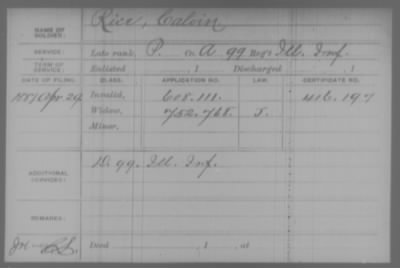 NAME OF SOLDIER: Rice, Calvin
SERVICE: Late rank, P. Co. A, 99 Reg't Ill. Inf.
TERM OF SERVICE: Enlisted , 1 Discharged , 1
DATE OF FILING. CLASS. APPLICATION NO. LAW. CERTIFICATE NO.
1887 Apr. 29 Invalid, 608.111. 416.197
Widow, 752.768. J.
Minor,
ADDITIONAL SERVICES: D. 99. Ill. Inf.
REMARKS:
Died , 1 , at